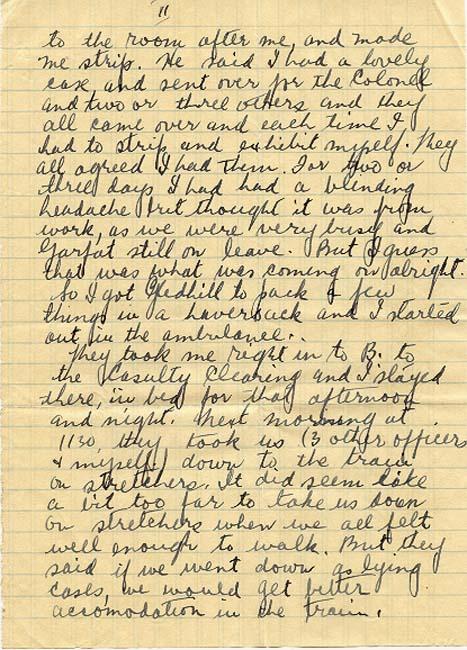 11
to the room after me, and made
me strip. He said I had a lovely
case and sent over for the Colonel
and two or three others and they
all came over and each time I
had to strip and exhibit myself. They
all agreed I had them. For two or
three days I had had a blinding
headache but thought it was from
work, as we were very busy and
Garfat still on leave. But I guess
that was what was coming on alright.
So I got Gledhill to pack a few
things in a haversack and I started
out in the ambulance.
They took me right in to B. to
the Casulty Clearing and I stayed
there, in bed for that afternoon
and night. Next morning at
1130, they took us (3 other officers
& myself) down to the train
on stretchers. It did seem like
a bit too far to take us down
on stretchers when we all felt
well enough to walk. But they
said if we went down as lying
cases, we would get better
accomodation in the train.